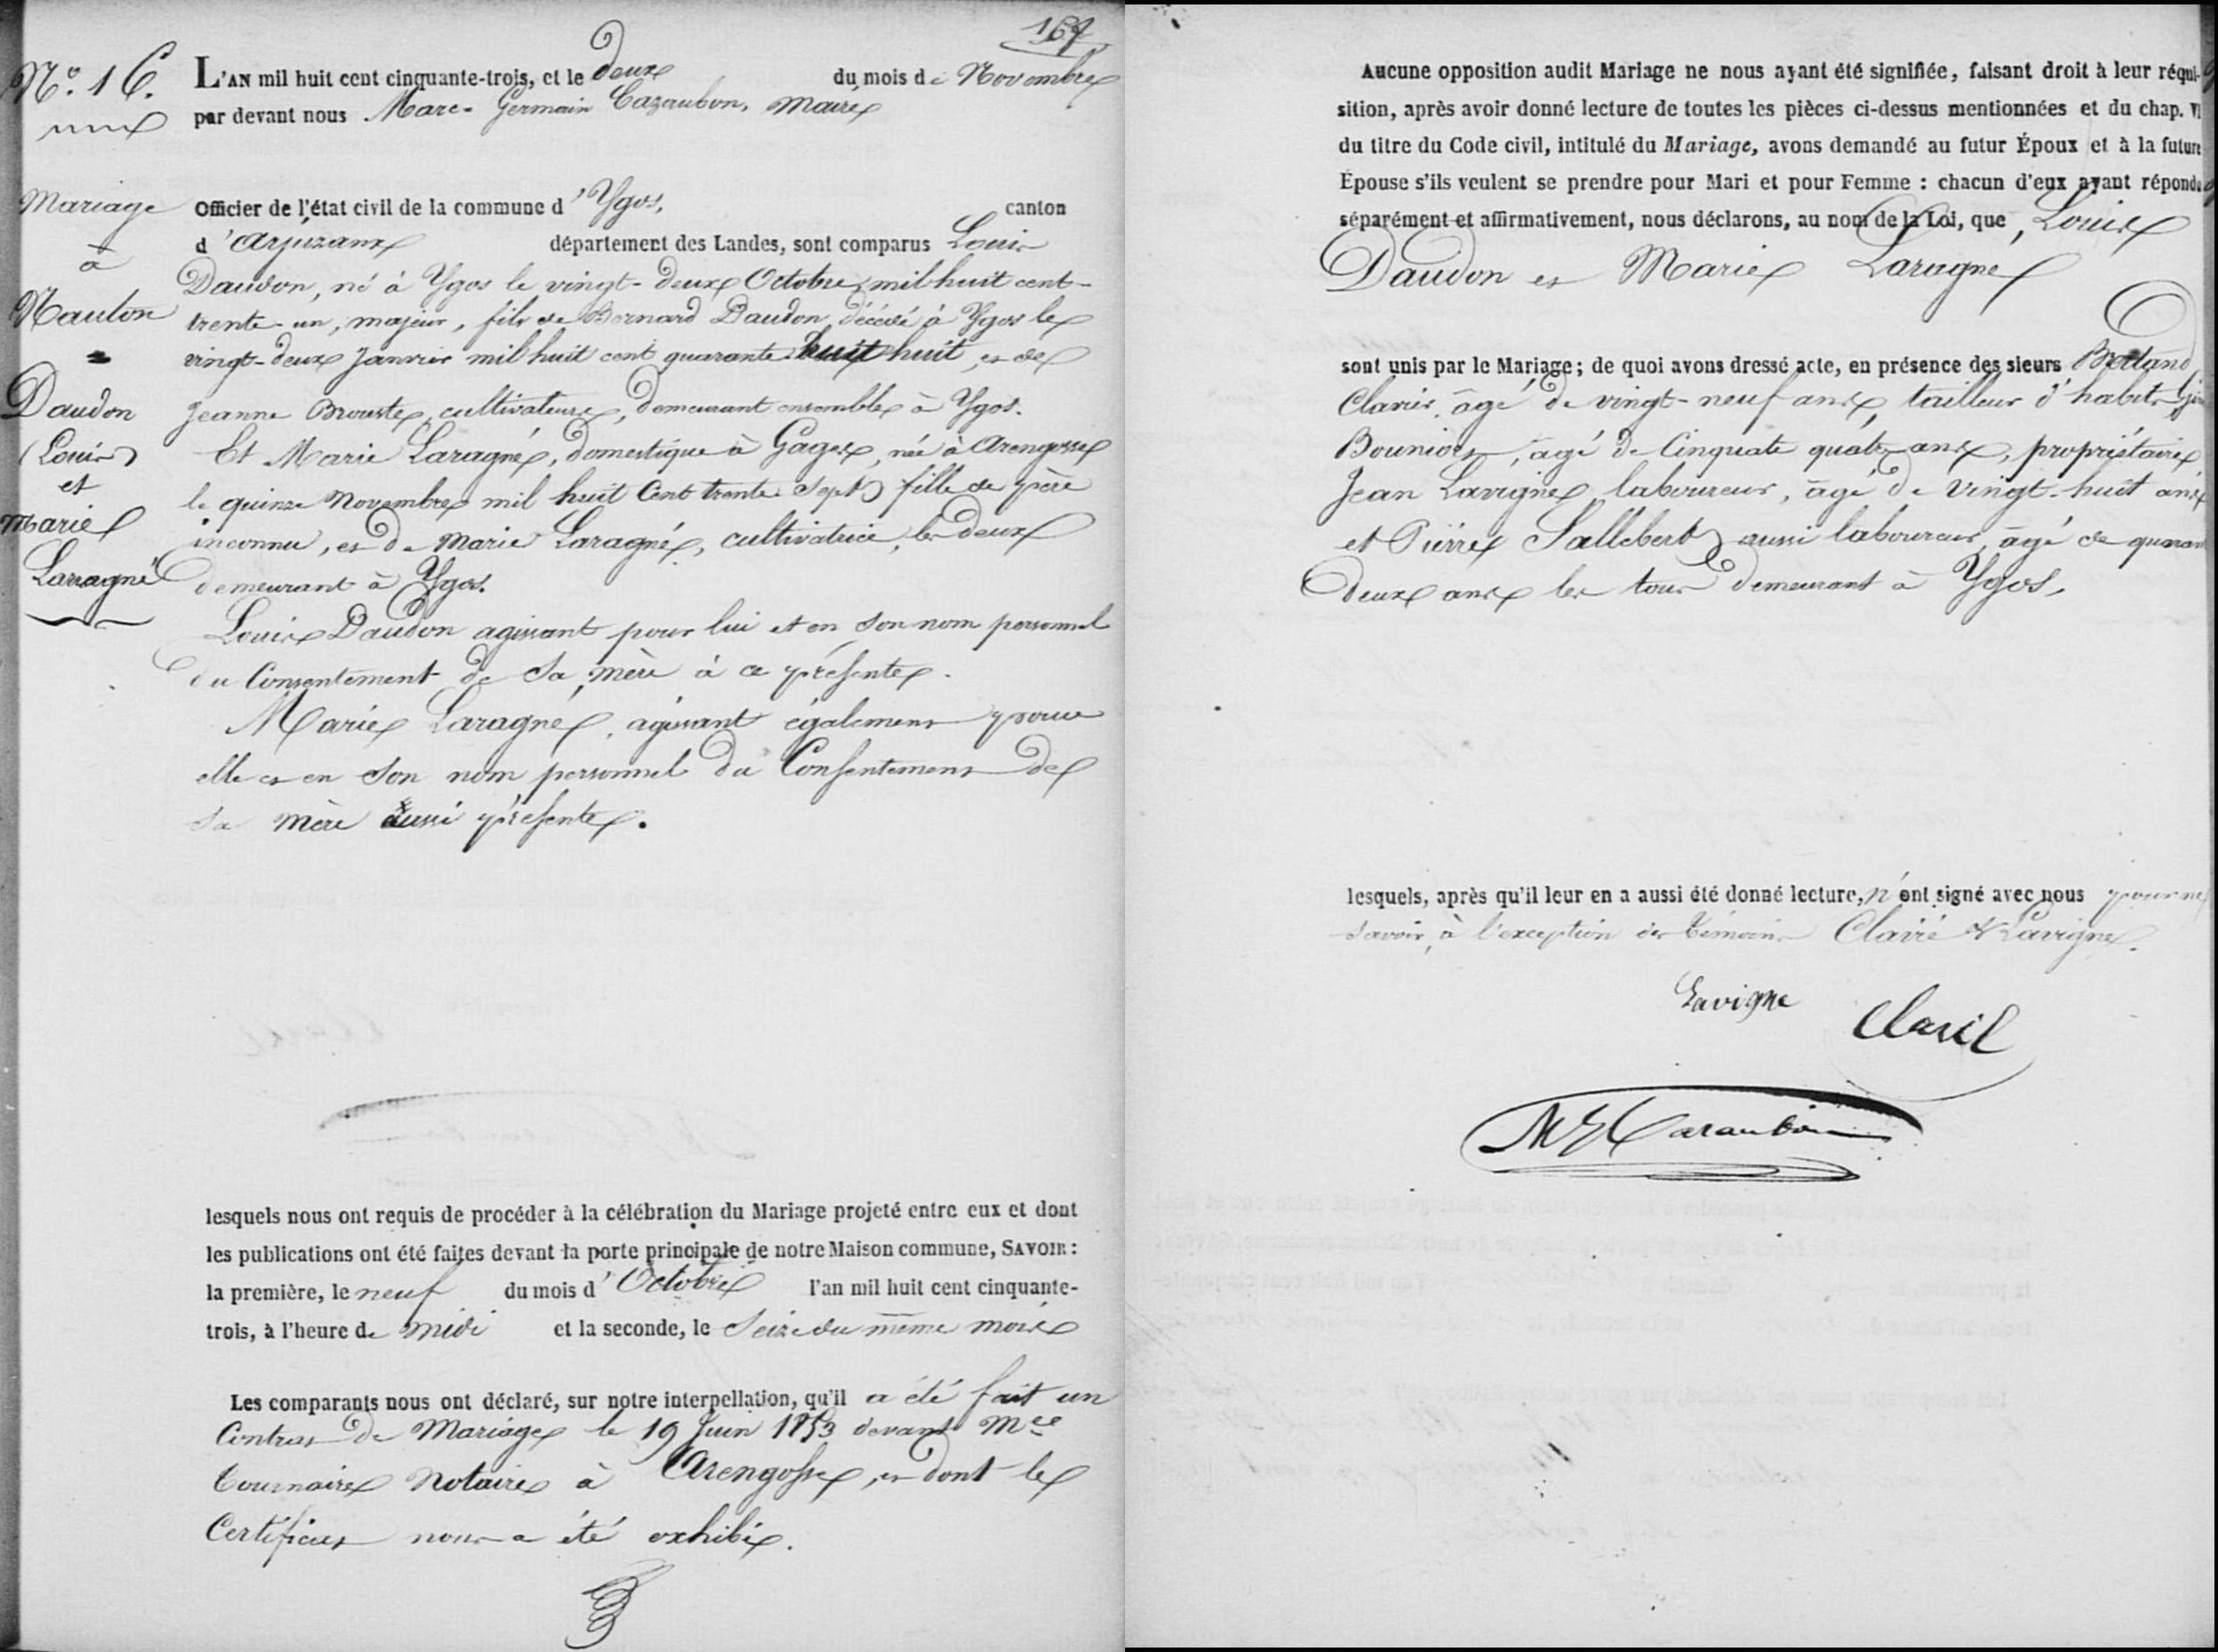 167
N.º 16.
Mariage
à
Nauton
Daudon
(Louis)
et
Marie
Larragné
L'AN mil huit cent cinquante-trois, et le deux du mois de Novembre
par devant nous Marc-Germain Cazaubon, Maire
Officier de l'état civil de la commune d'Ygos, canton
d'Arjuzanx département des Landes, sont comparus Louis
Daudon, né à Ygos le vingt-deux Octobre mil huit cent-
trente-un, majeur, fils de Bernard Daudon, décédé à Ygos le
vingt-deux Janvier mil huit cent quarante huit huit, et de
Jeanne Brouste, cultivateurs, demeurant ensemble à Ygos.
Et Marie Laragné, domestique à Gages, née à Arengosse
le quinze Novembre mil huit Cent trente Sept, fille de père
inconnu, et de Marie Laragné, cultivatrice, les deux
demeurant à Ygos.
Louis Daudon agissant pour lui et en son nom personnel
du Consentement de Sa mère à ce présente.
Marie Laragné, agissant également pour
elle et en Son nom personnel du Consentement de
Sa Mère aussi présente.
lesquels nous ont requis de procéder à la célébration du Mariage projeté entre eux et dont
les publications ont été faites devant la porte principale de notre Maison commune, SAVOIR :
la première, le neuf du mois d'Octobre l'an mil huit cent cinquante-
trois, à l'heure de midi et la seconde, le Seize du même mois
Les comparants nous ont déclaré, sur notre interpellation, qu'il a été fait un
Contrat de Mariage le 19 Juin 1853 devant Mce
Tournaire Notaire à Arengosse, et dont le
Certificat nous a été exhibé.
Aucune opposition audit Mariage ne nous ayant été signifiée, faisant droit à leur réqui-
sition, après avoir donné lecture de toutes les pièces ci-dessus mentionnées et du chap. VI
du titre du Code civil, intitulé du Mariage, avons demandé au futur Époux et à la future
Épouse s'ils veulent se prendre pour Mari et pour Femme : chacun d'eux ayant répondu
séparément et affirmativement, nous déclarons, au nom de la Loi, que, Louis
Daudon et Marie Laragne
sont unis par le Mariage ; de quoi avons dressé acte, en présence des sieurs Bertand
Clavié, âgé de vingt-neuf ans, tailleur d'habits
Bouniort, âgé de Cinquate quatre ans, propriétaire
Jean Lavigne, laboureur, âgé de vingt-huit ans
et Pierre Sallebert, aussi laboureur, âgé de quaran
deux ans les tous demeurant à Ygos,
lesquels, après qu'il leur en a aussi été donné lecture, n'ont signé avec nous pour ne
Savoir, à l'exception des témoins Clavié & Lavigne.
Lavigne
Clavié
MG Cazaubon